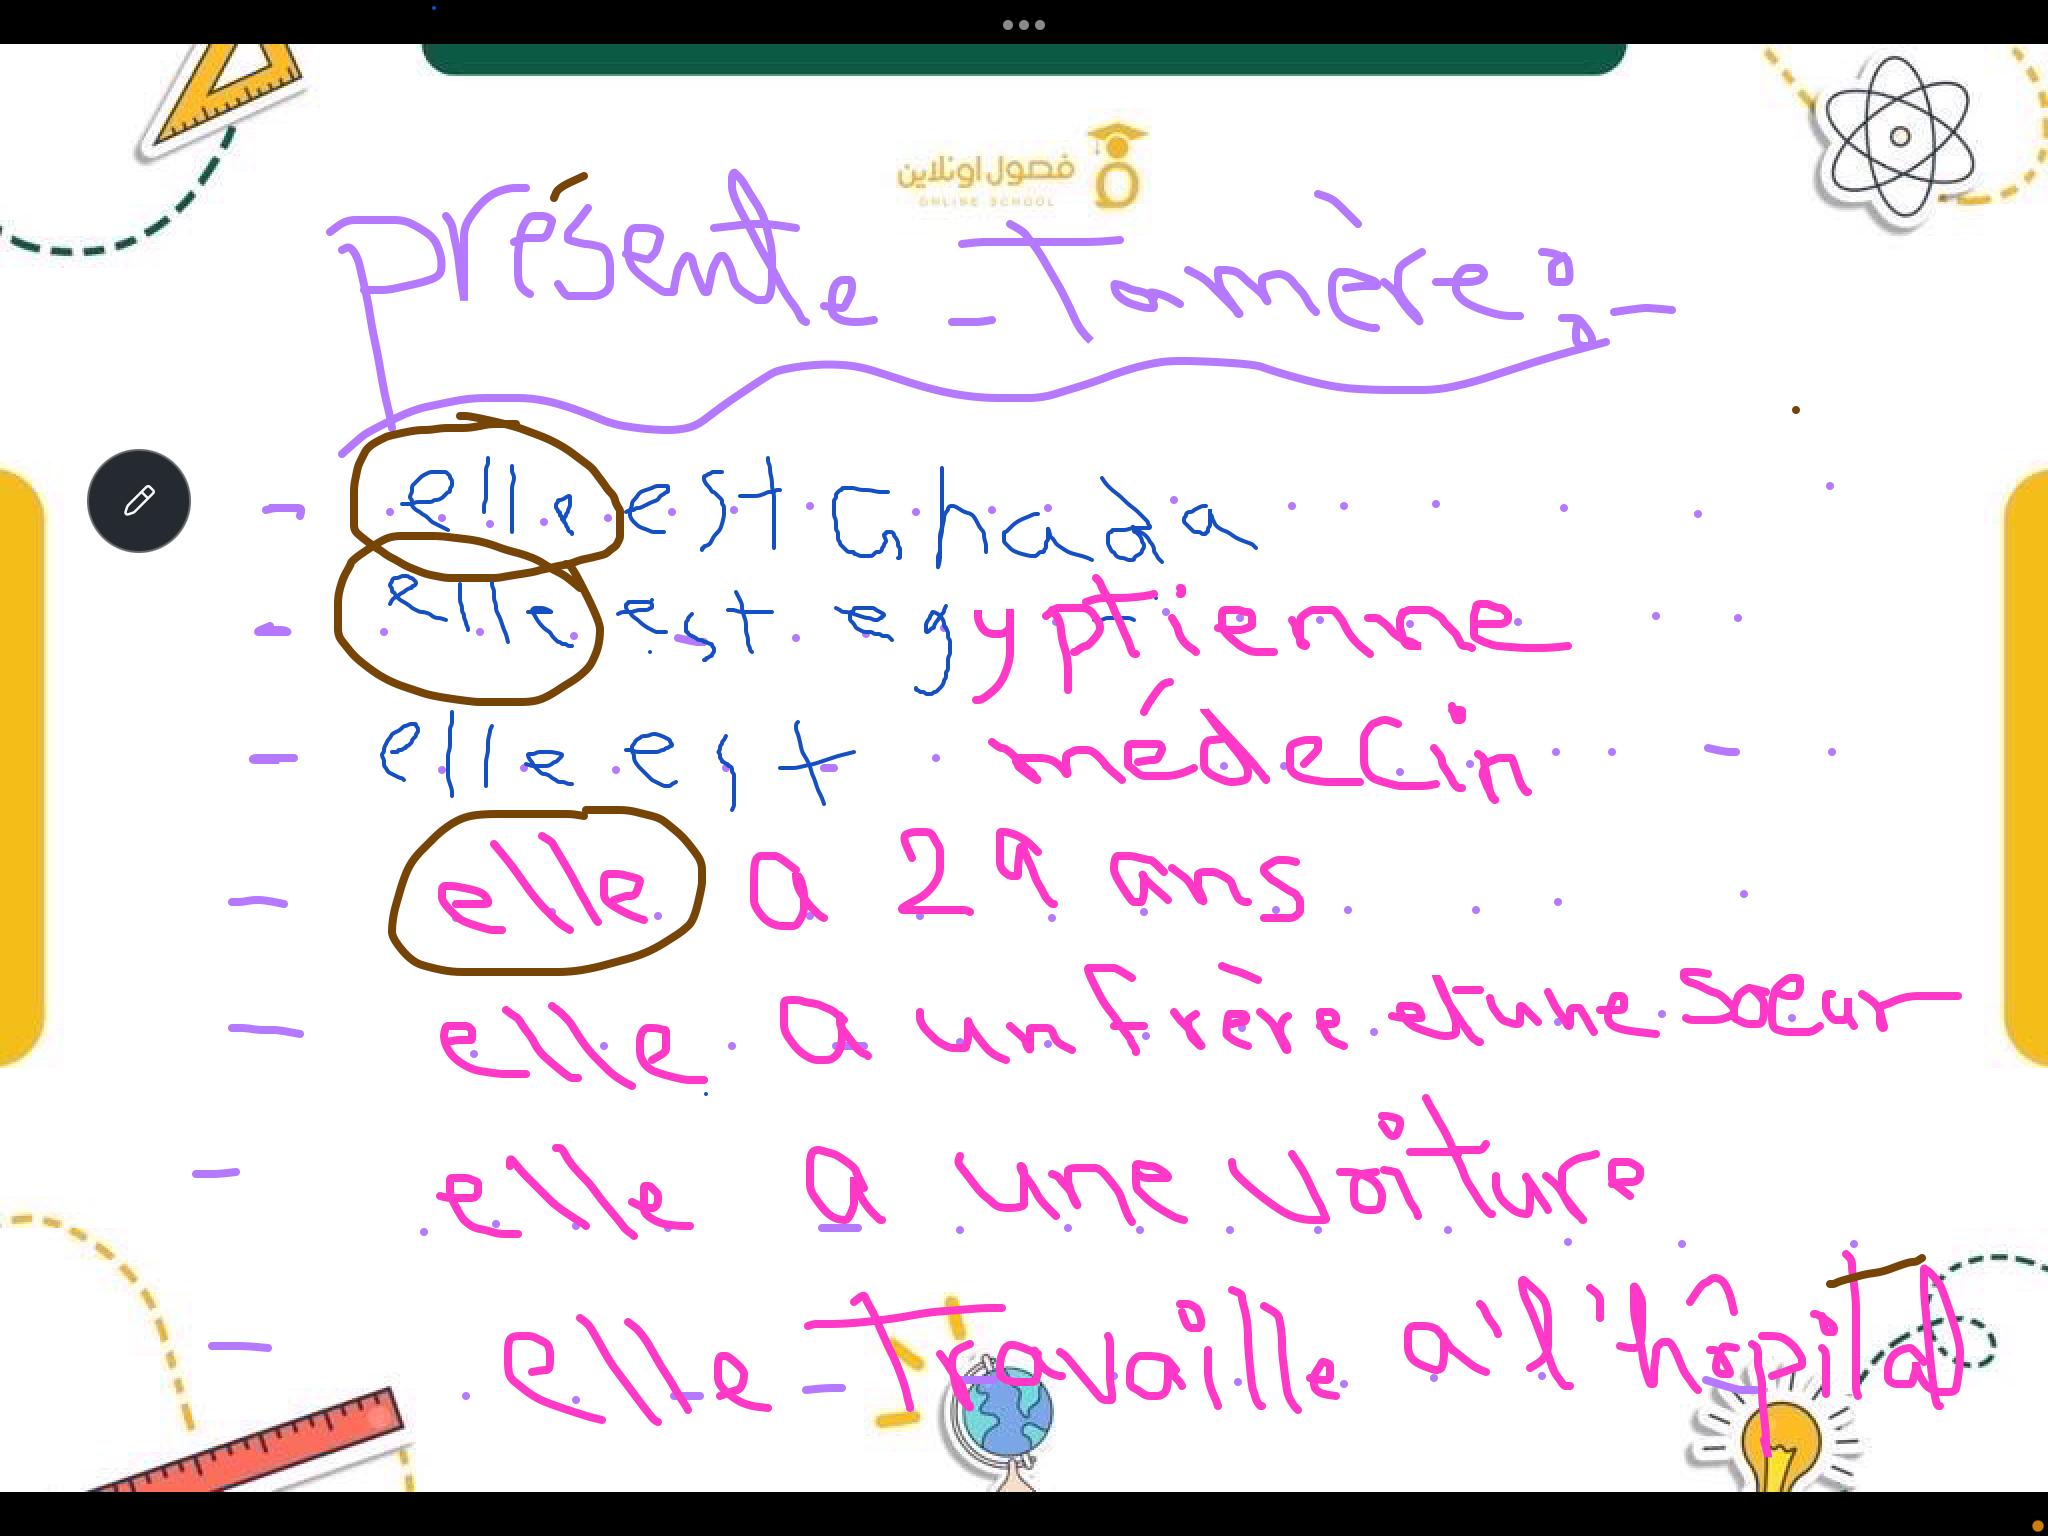 فصول اونلاين
ONLINE SCHOOL
présente Ta mère :-
- elle est Ghada
- elle est egyptienne
- elle est médecin
- elle a 29 ans
- elle a un frère et une sœur
- elle a une voiture
- elle Travaille a' l'hôpital